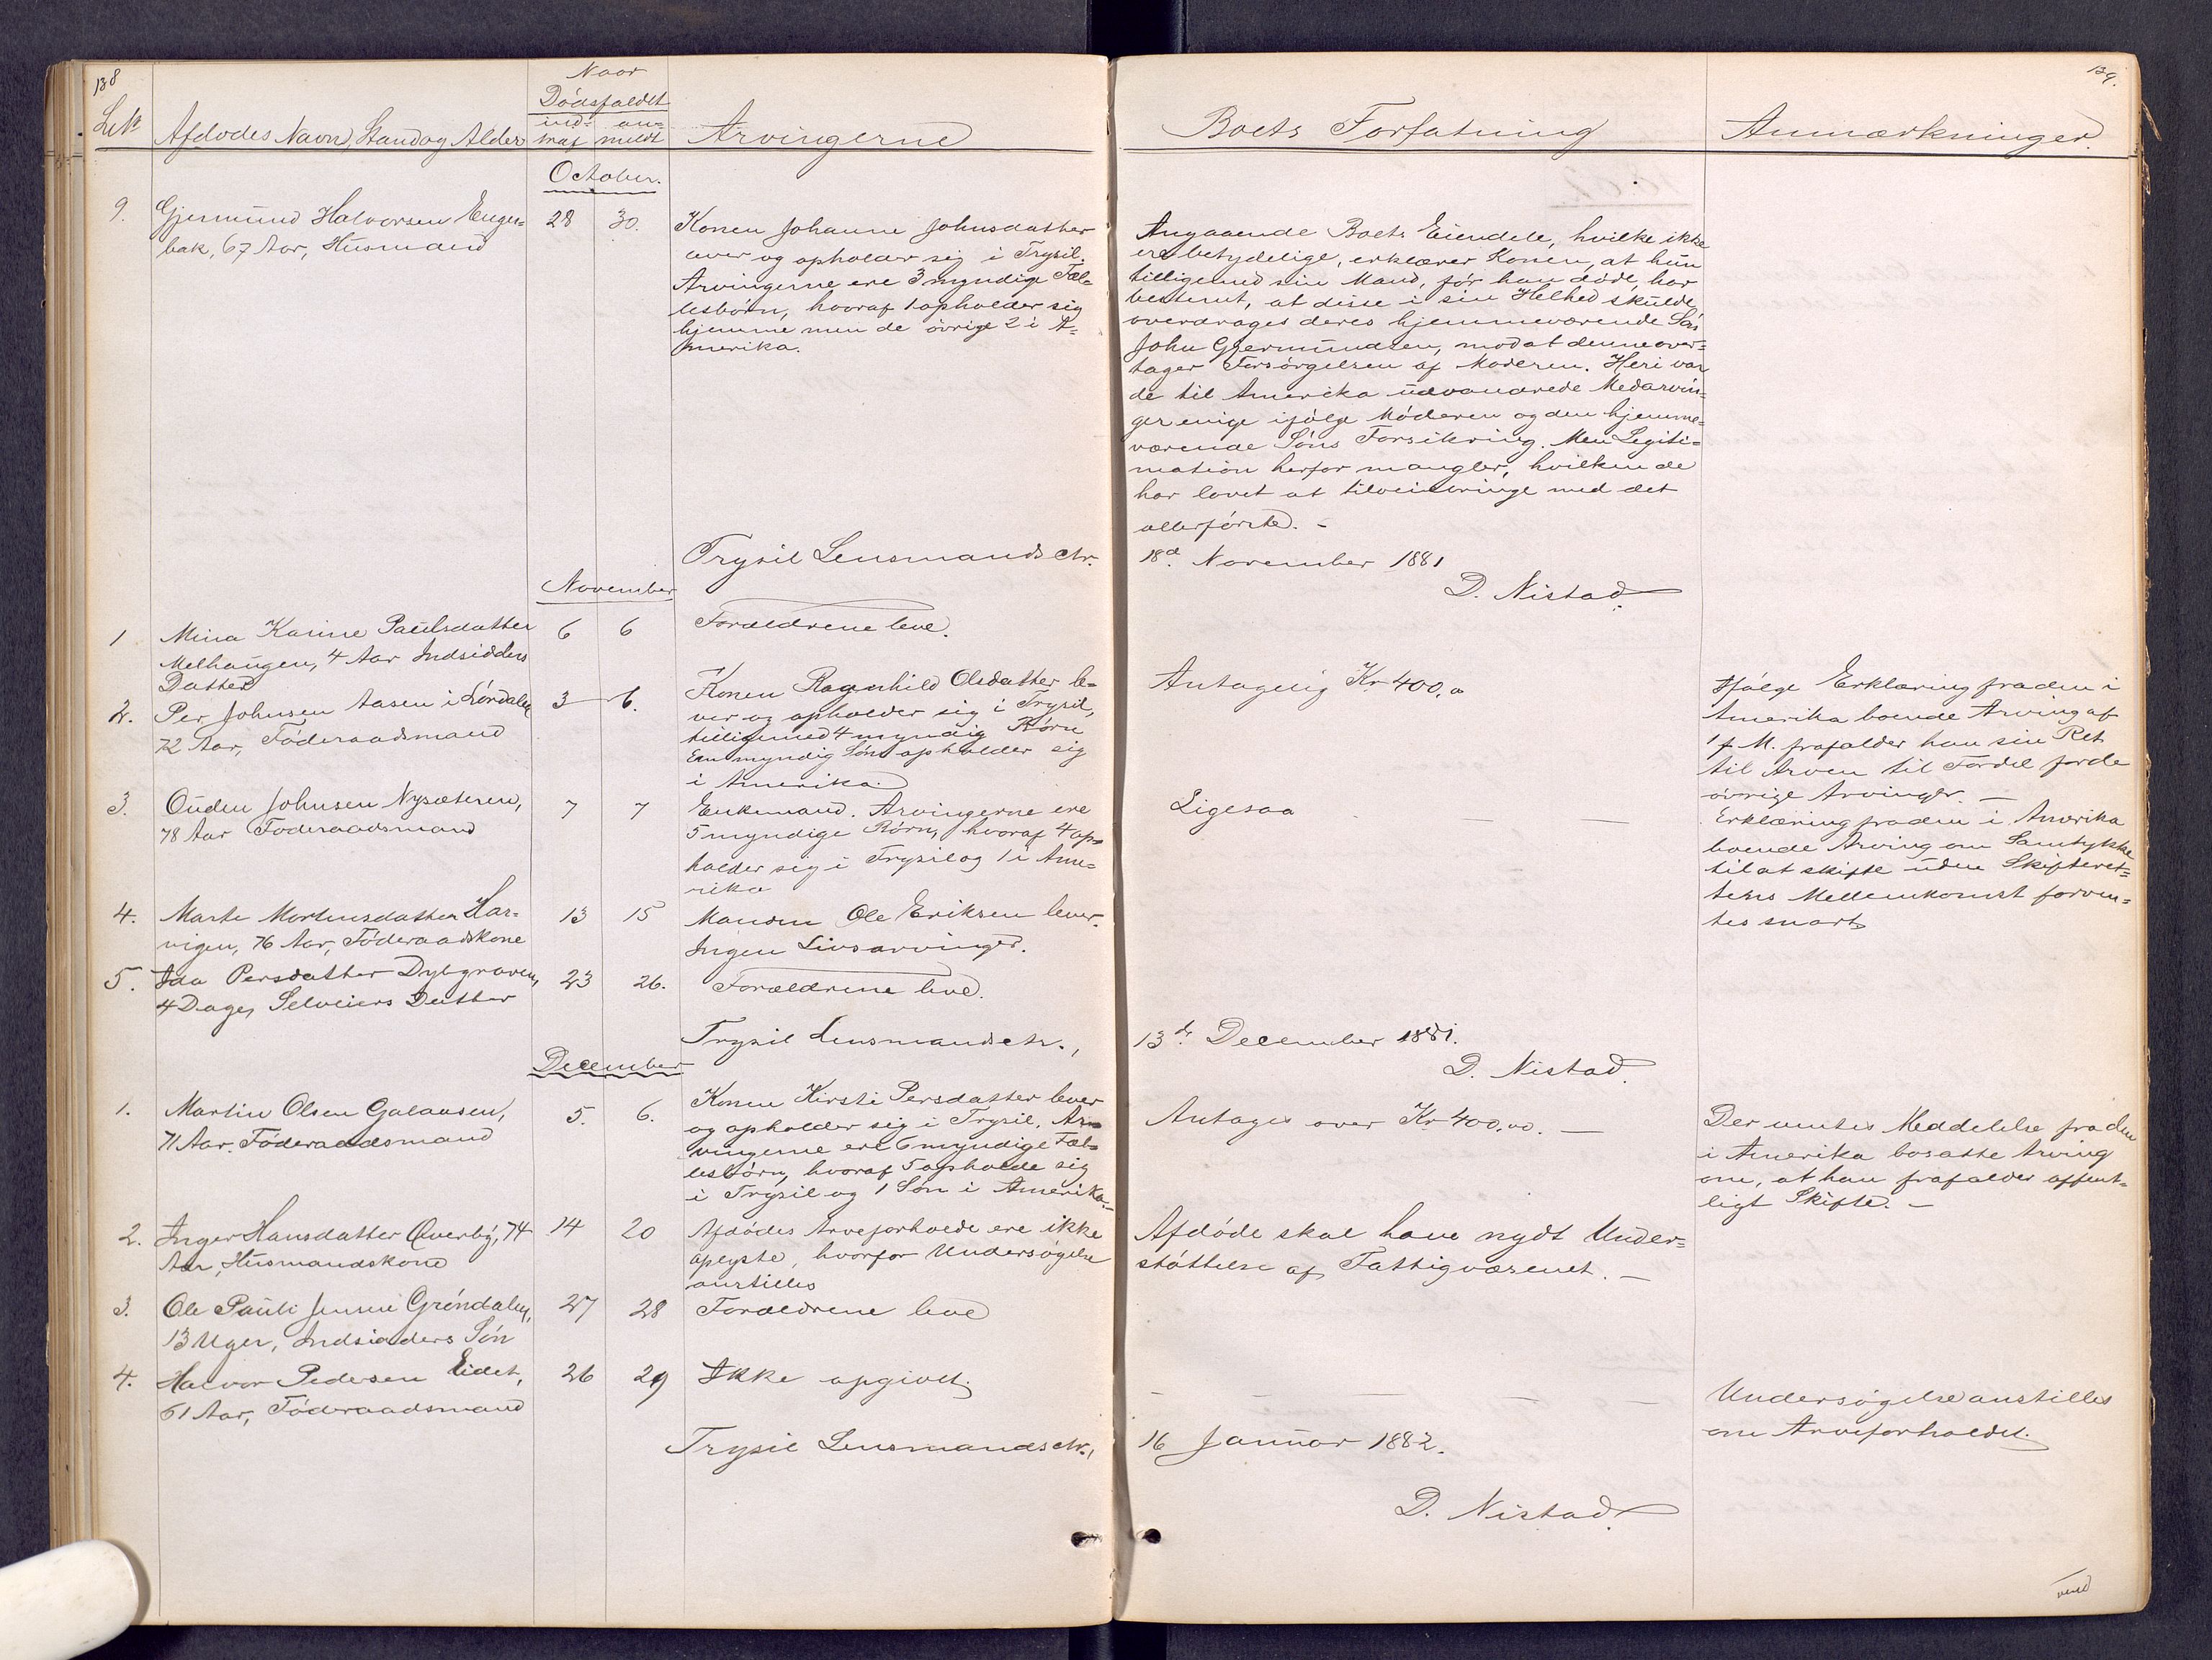 138
Naar
Dödsfaldet
LNo
Afdödes Navn, Stand og Alder
ind-
traf
an-
meldt
Arvingerne
October.
9.
Gjermund Halvorsen Enger-
bak, 67 Aar, Husmand
28
30.
Konen Johanne Johnsdatter
lever og opholder sig i Trysil.
Arvingerne ere 3 myndige Fæl-
lesbörn, hvoraf 1 opholder sig
hjemme men de övrige 2 i A-
merika.
Trysil Lensmandsctr.
November
1
Mina Karine Paulsdatter
Melhaugen, 4 Aar Indsidders
Datter
6
6
Forældrene leve.
2.
Per Johnsen Aasen i Lördalen
72 Aar, Föderaadsmand
3
6.
Konen Ragnhild Olsdatter le-
ver og opholder sig i Trysil,
tilligemed 4 myndig Börn
En myndig Sön opholder sig
i Amerika.
3.
Ouden Johnsen Nysæteren,
78 Aar Föderaadsmand
7
7
Enkemand. Arvingerne ere
5 myndige Börn, hvoraf 4 op-
holder sig i Trysil og 1 i Ame-
rika
4.
Marte Mortensdatter Har-
vigen, 76 Aar, Föderaadskone
13
15
Manden Ole Eriksen lever.
Ingen Livsarvinger.
5.
Ida Persdatter Dybgraven,
4 Dage, Selveiers Datter
23
26.
Forældrene leve.
Trysil Lensmandsctr.,
December
1.
Martin Olsen Galaasen,
71 Aar. Föderaadsmand
5.
6.
Konen Kirsti Persdatter lever
og opholder sig i Trysil. Ar-
vingerne ere 6 myndige Fæl-
lesbörn, hvoraf 5 opholde sig
i Trysil og 1 Sön i Amerika.
2.
Inger Hansdatter Överby, 74
Aar, Husmandskone
14
20
Afdödes Arveforholde ere ikke
oplyste, hvorfor Undersögelse
anstilles
3.
Ole Pauli Jensen Gröndalen,
13 Uger, Indsidders Sön
27
28
Forældrene leve
4.
Halvor Pedersen Eidet,
61 Aar, Föderaadsmand
26
29
Ikke opgivet.
Trysil Lensmandsctr.,
139.
Boets Forfatning
Anmærkninger.
Angaaende Boets Eiendele, hvilke ikke
ere betydelige, erklærer Konen, at hun
tilligemed sin Mand, för han döde, har
bestemt, at disse i sin Helhed skulde
overdrages deres hjemmeværende Sön
John Gjermundsen, mod at denne over-
tager Forsörgelsen af Moderen. Heri var
de til Amerika udvandrede Medarvin-
ger enige ifölge Möderen og den hjemme-
værende Söns Forsikring. Men Legiti-
mation herfor mangler, hvilken de
har lovet at tilveiebringe med det
allerförste. -
18d November 1881
D. Nistad.
Antagelig Kr 400.00
Ifölge Erklæring fra den i
Amerika boende Arving af
1 f. M. frafalder han sin Ret
til Arven til Fordel for de
övrige Arvinger. -
Ligesaa
Erklæring fra den i Amerika
boende Arving om Samtykke
til at skifte uden Skifteret-
tens Mellemkomst forven-
tes snart
13de December 1881.
D. Nistad.
Antages over Kr 400.00. -
Der ventes Meddelelse fra den
i Amerika bosatte Arving
om, at han frafalder offent-
ligt Skifte. -
Afdöde skal have nydt Under-
stöttelse af Fattigvæsenet. -
Undersögelse anstilles
om Arveforholdet.
16 Januar 1882.
D. Nistad.
vend